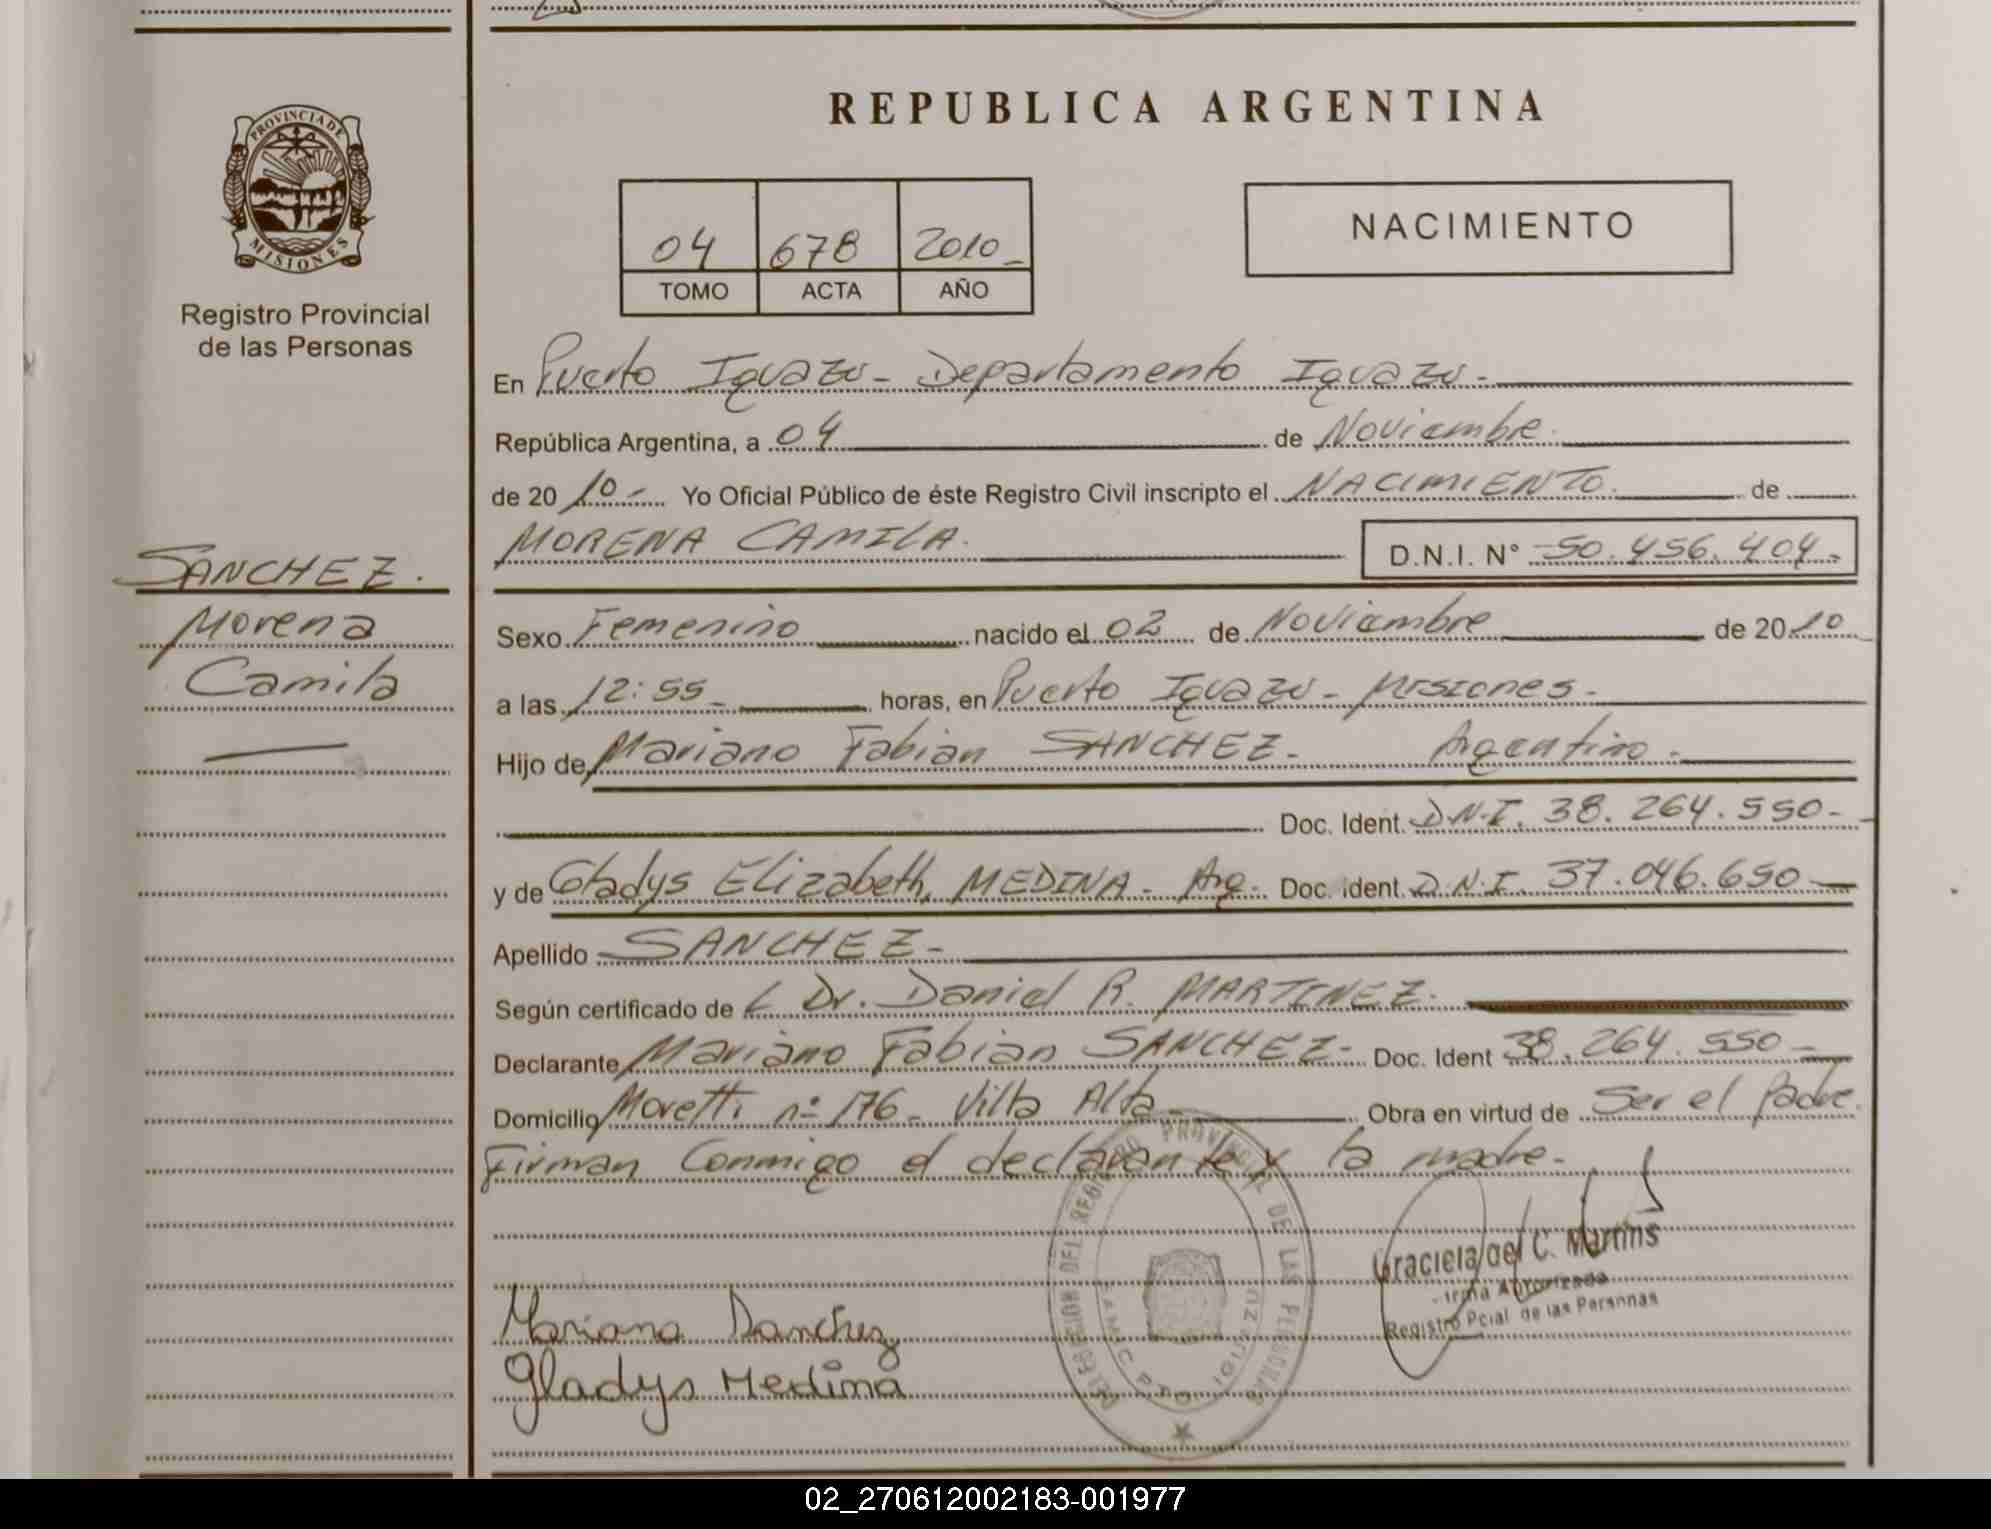 PROVINCIA DE
MISIONES
Registro Provincial
de las Personas
SANCHEZ.
Morena
Camila
REPUBLICA ARGENTINA
04 678 2010
TOMO ACTA AÑO
NACIMIENTO
En Puerto Iguazu - Departamento Iguazu -
República Argentina, a 04 de Noviembre.
de 20 10 - Yo Oficial Público de éste Registro Civil inscripto el NACIMIENTO. de
MORENA CAMILA. D.N.I. N° 50.456.404-
Sexo Femenino nacido el 02 de Noviembre de 20 10
a las 12:55 horas, en Puerto Iguazu - Misiones -
Hijo de Mariano Fabian SANCHEZ - Argentino -
Doc. Ident. D.N.I. 38.264.550-
y de Gladys Elizabeth, MEDINA - Arg. Doc. ident. D.N.I. 37.046.650-
Apellido SANCHEZ -
Según certificado de L Dr. Daniel R. MARTINEZ -
Declarante Mariano Fabian SANCHEZ - Doc. Ident 38.264.550-
Domicilio Moretti nº 176 - Villa Alta - Obra en virtud de Ser el Padre.
Firman Conmigo el declarante y la madre -
DELEGACION DEL REGISTRO PROVINCIAL DE LAS PERSONAS
Graciela del C. Martins
Firma Autorizada
Registro Pcial de las Personas
Mariano Sanchez
Gladys Medina
02_270612002183-001977